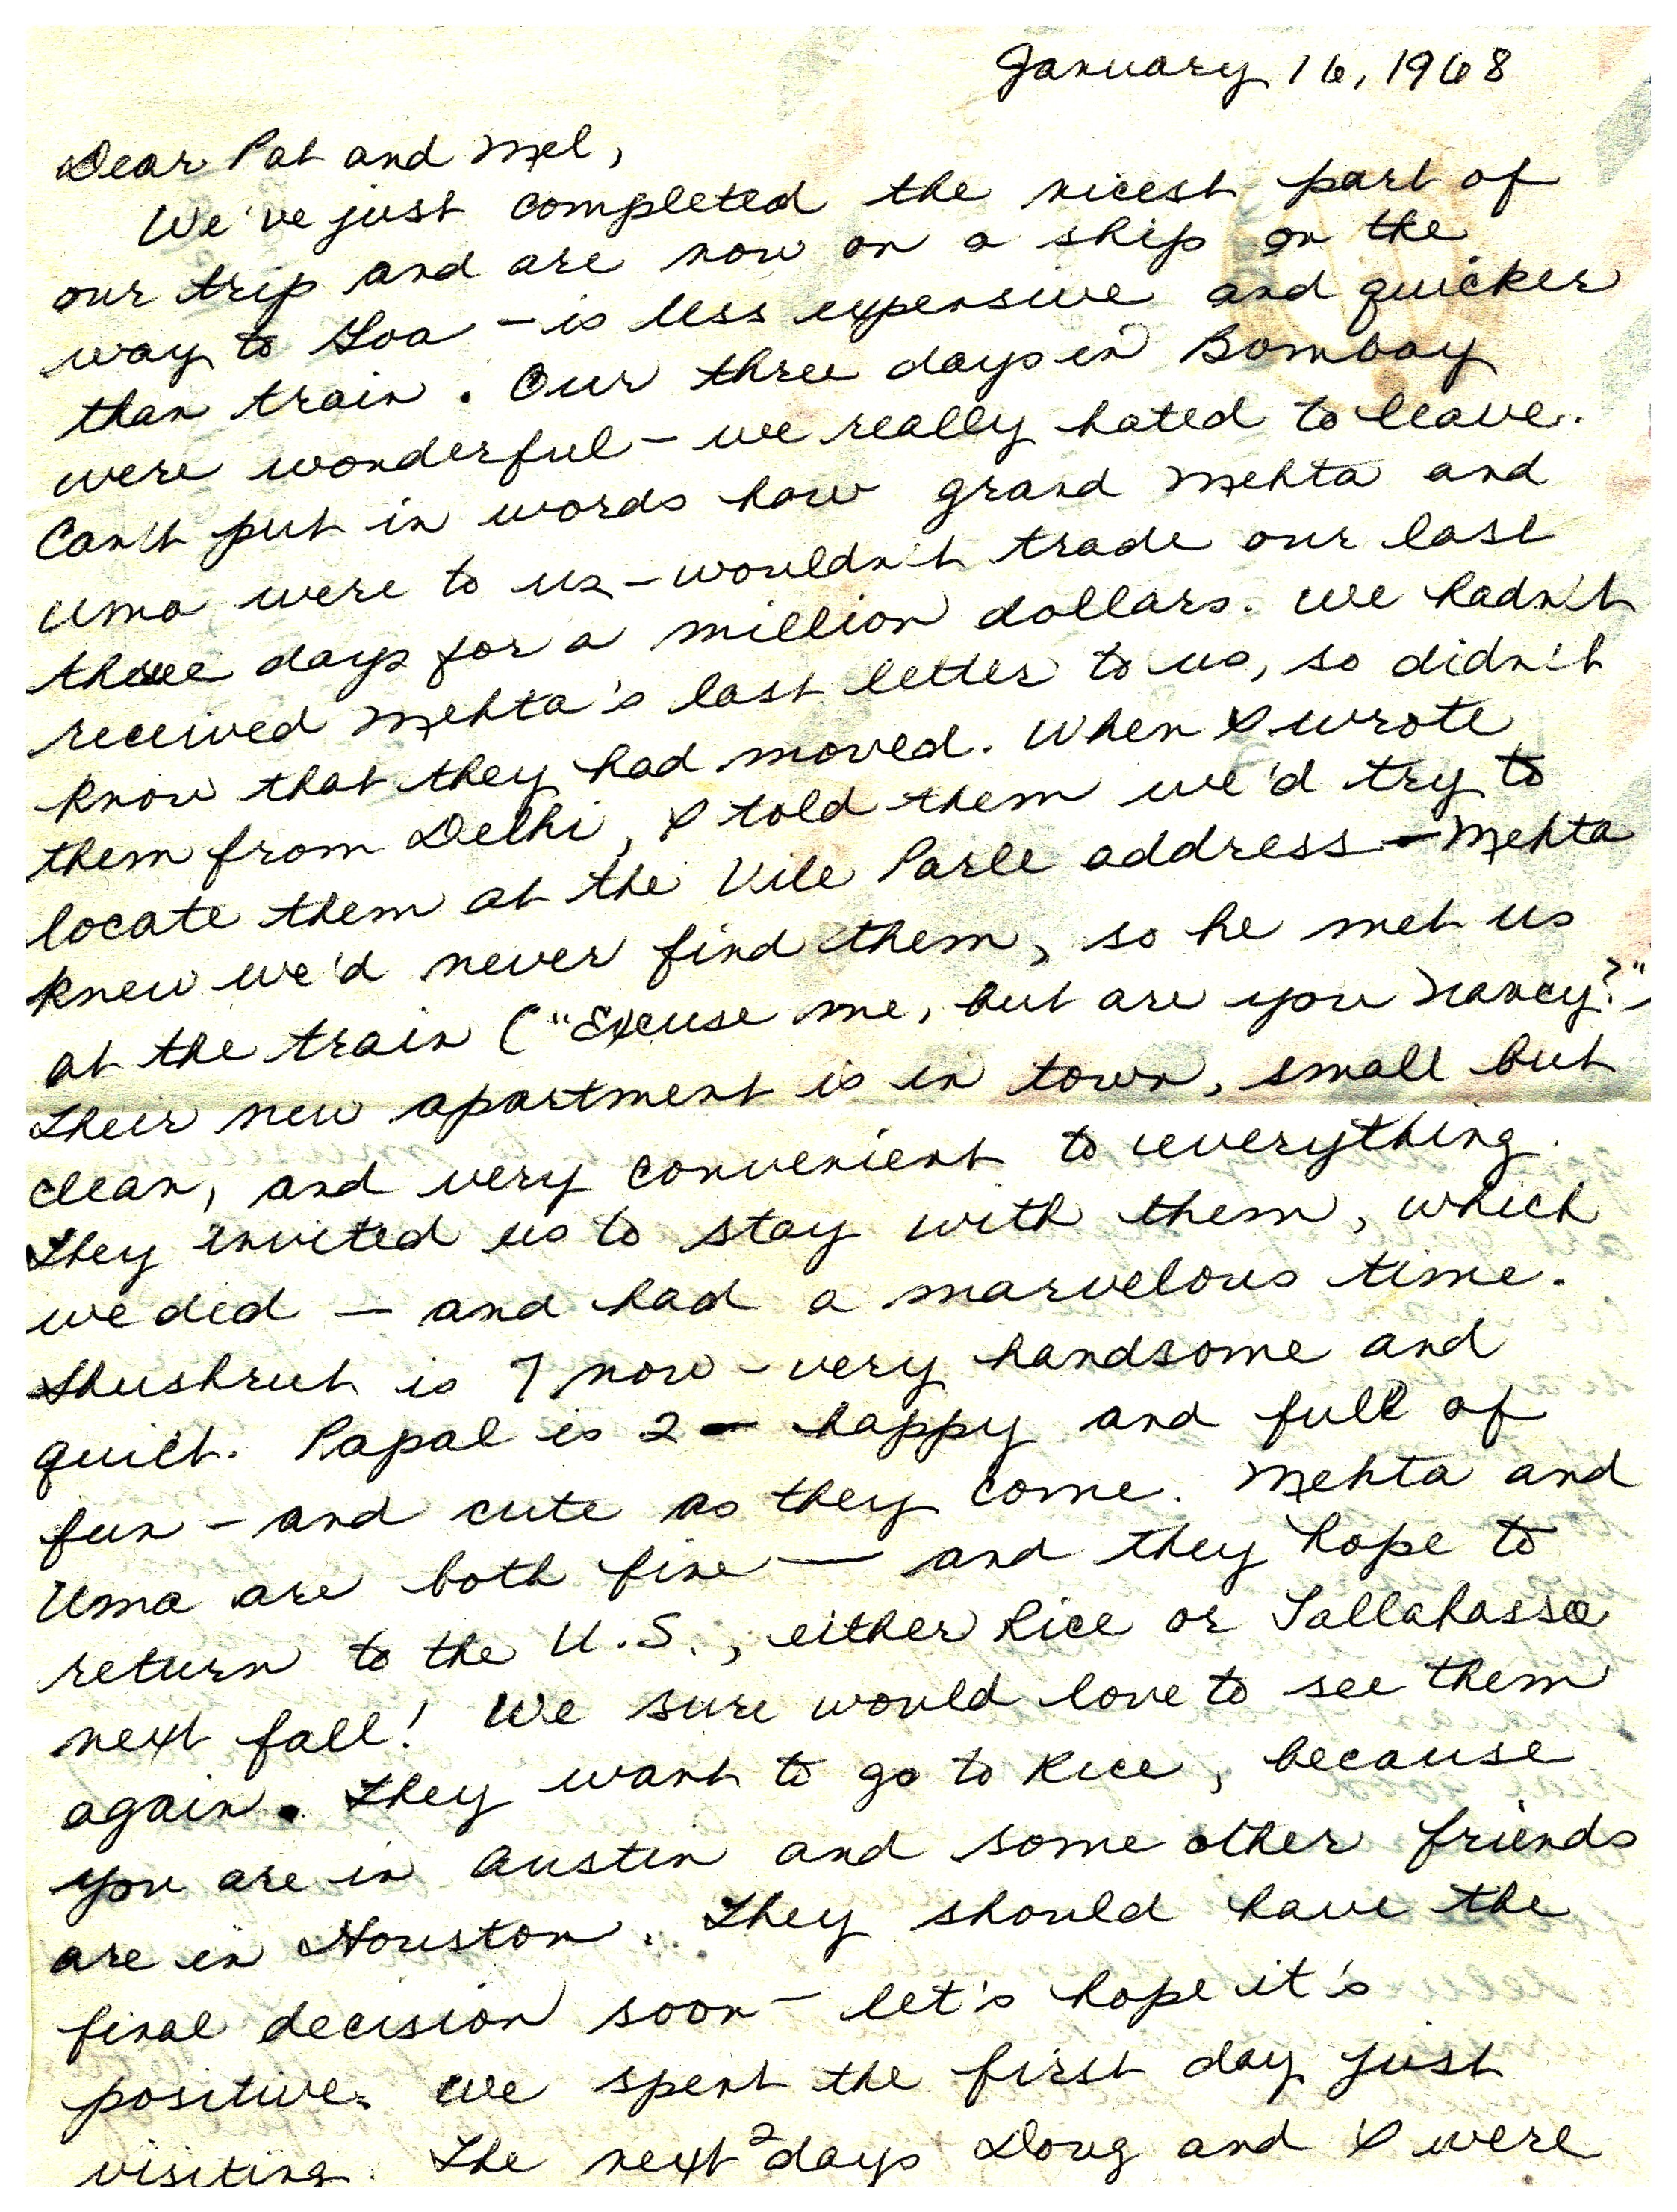 January 16, 1968
Dear Pat and Mel,
We've just completed the nicest part of
our trip and are now on a ship on the
way to Goa - is less expensive and quicker
than train. Our three days in Bombay
were wonderful - we really hated to leave.
Can't put in words how grand Mehta and
Uma were to us - wouldn't trade our last
three days for a million dollars. We hadn't
received Mehta's last letter to us, so didn't
know that they had moved. When I wrote
them from Delhi, I told them we'd try to
locate them at the Vile Parle address - Mehta
knew we'd never find them, so he met us
at the train ("Excuse me, but are you Nancy?"
Their new apartment is in town, small but
clean, and very convenient to everything.
They invited us to stay with them, which
we did - and had a marvelous time.
Shushrut is 7 now - very handsome and
quiet. Papal is 2 - happy and full of
fun - and cute as they come. Mehta and
Uma are both fine - and they hope to
return to the U.S., either Rice or Tallahassee
next fall! We sure would love to see them
again. They want to go to Rice, because
you are in Austin and some other friends
are in Houston. They should have the
final decision soon - let's hope it's
positive. We spent the first day just
visiting. The next 2 days Doug and I were